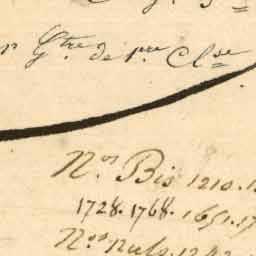 Gtre de 1re Clse
Nos Bis 1210.
1728. 1768. 1651. 17
Nos nuls.